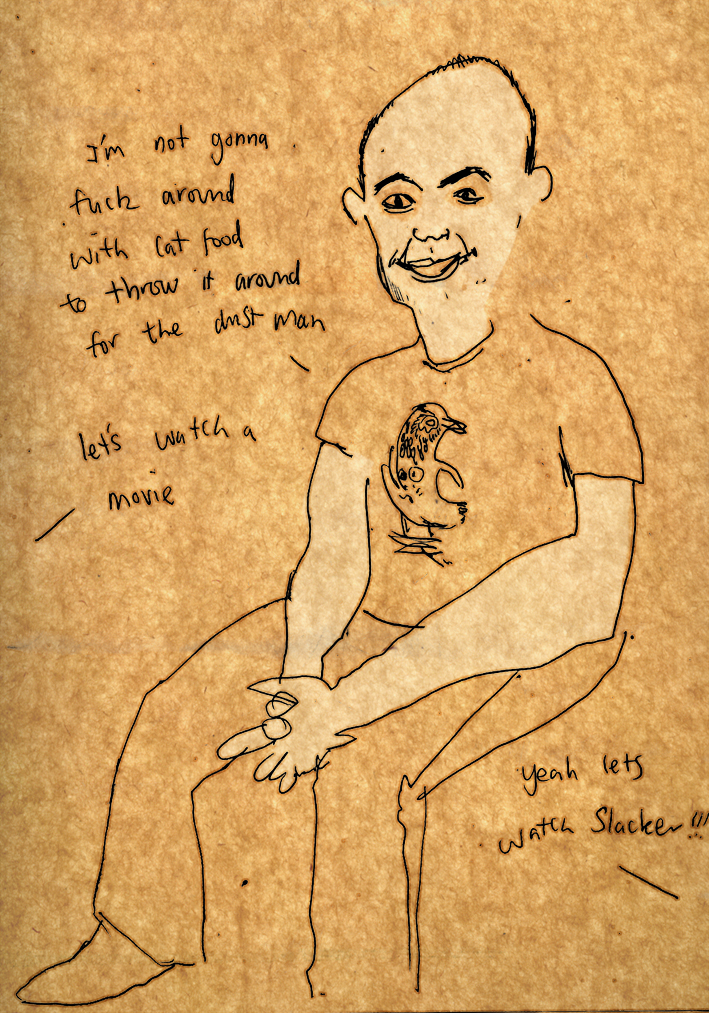 I'm not gonna
fuck around
with cat food
to throw it around
for the dust man
let's watch a
movie
yeah lets
watch Slacker!!!